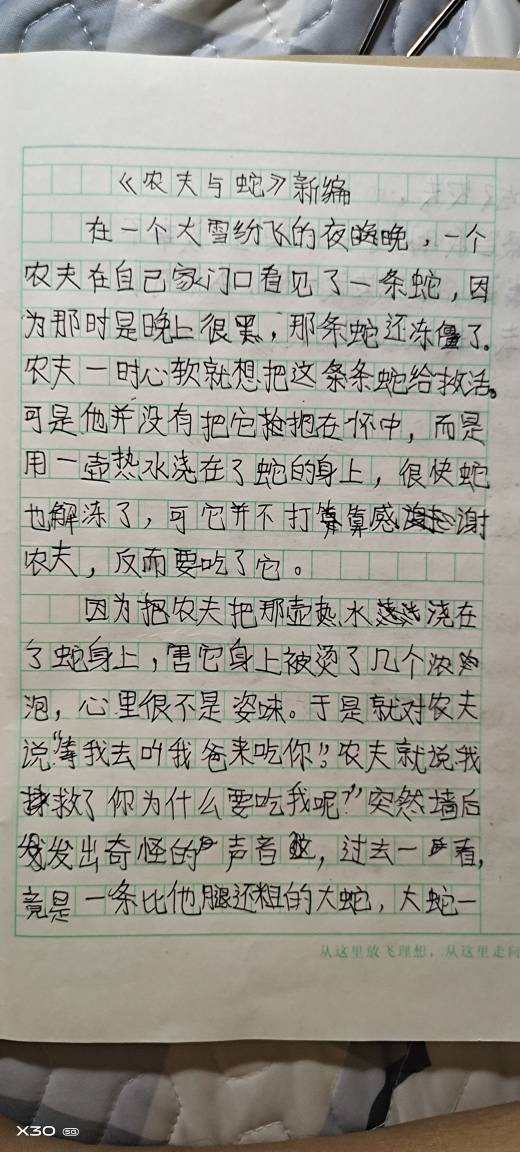 《农夫与蛇》新编
在一个大雪纷飞的夜晚，一个
农夫在自己家门口看见了一条蛇，因
为那时是晚上很黑，那条蛇还冻僵了。
农夫一时心软就想把这条条蛇给救活。
可是他并没有把它抱在怀中，而是
用一壶热水浇在了蛇的身上，很快蛇
也解冻了，可它并不打算感谢
农夫，反而要吃了它。
因为把农夫把那壶热水浇在
了蛇身上，害它身上被烫了几个浓
泡，心里很不是姿味。于是就对农夫
说“等我去叫我爸来吃你”。农夫就说我
救了你为什么要吃我呢？”突然墙后
发出奇怪的声音，过去一看，
竟是一条比他腿还粗的大蛇，大蛇一
从这里放飞理想，从这里走向
X30 5G